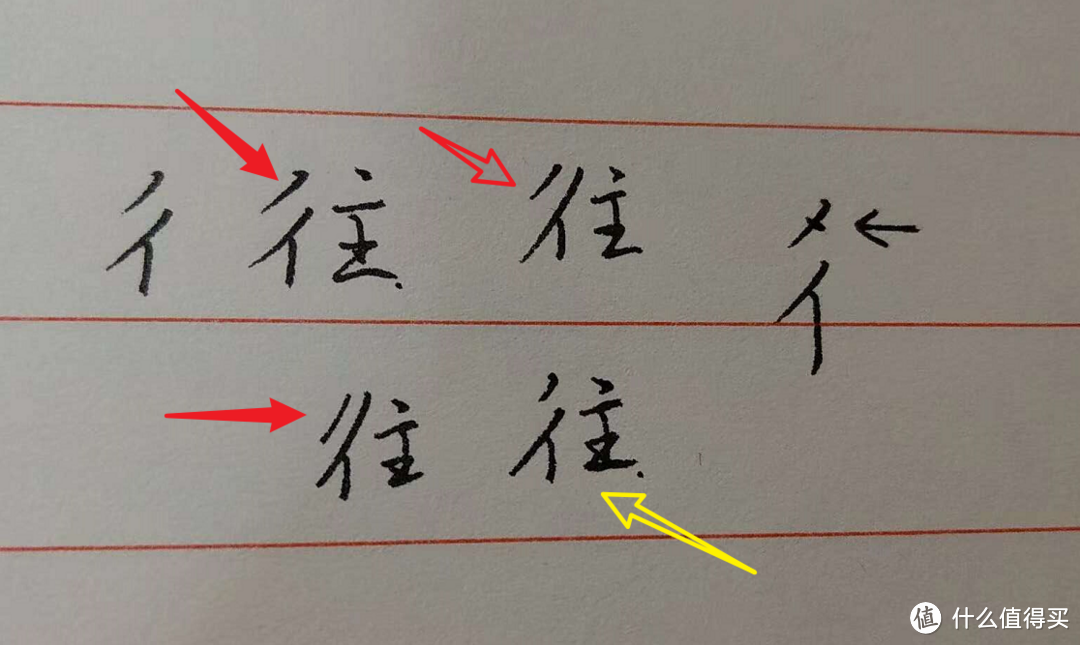 彳 往 往
往 往
值 什么值得买